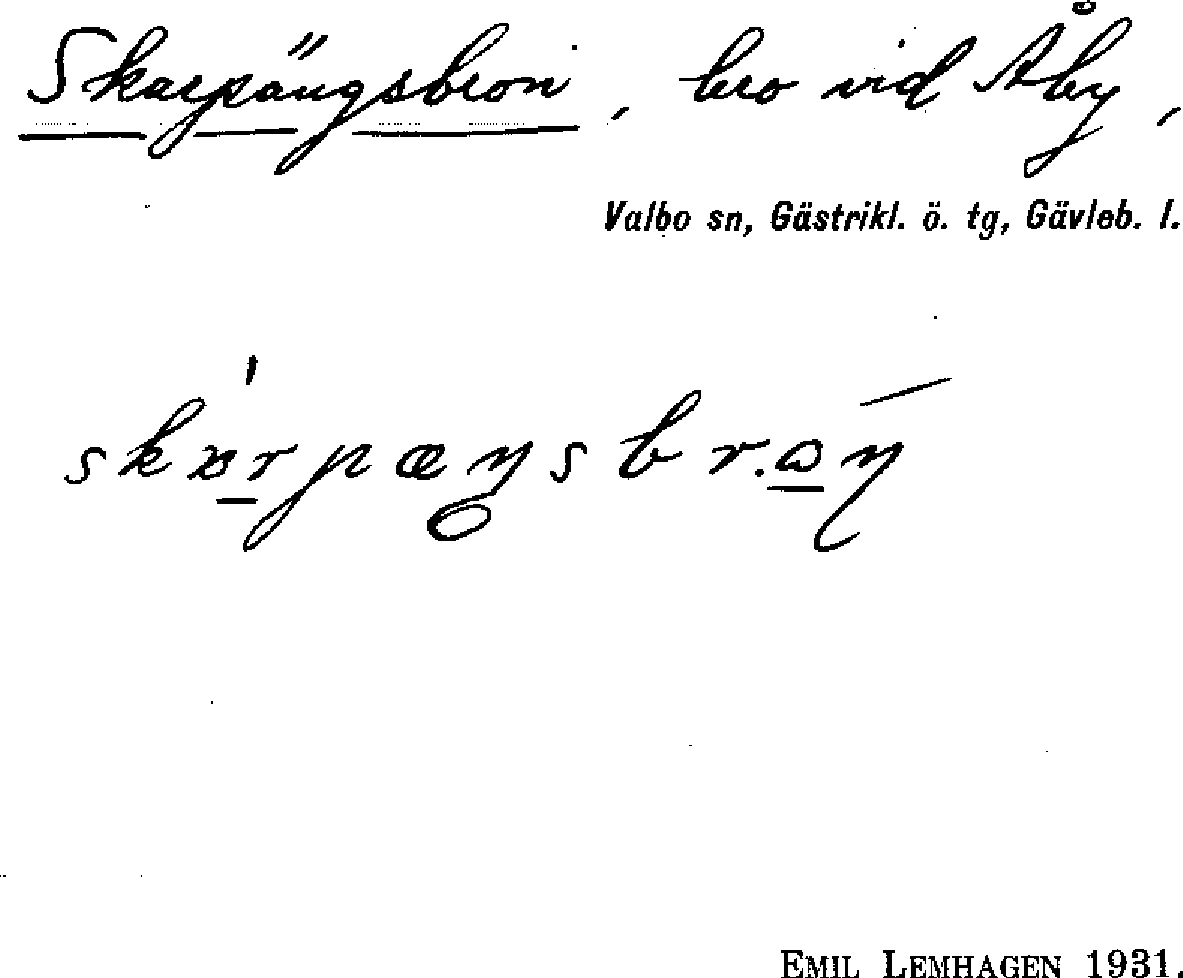 Skarpängsbron, bro vid Åby,
Valbo sn, Gästrikl. ö. tg, Gävleb. l.
EMIL LEMHAGEN 1931.